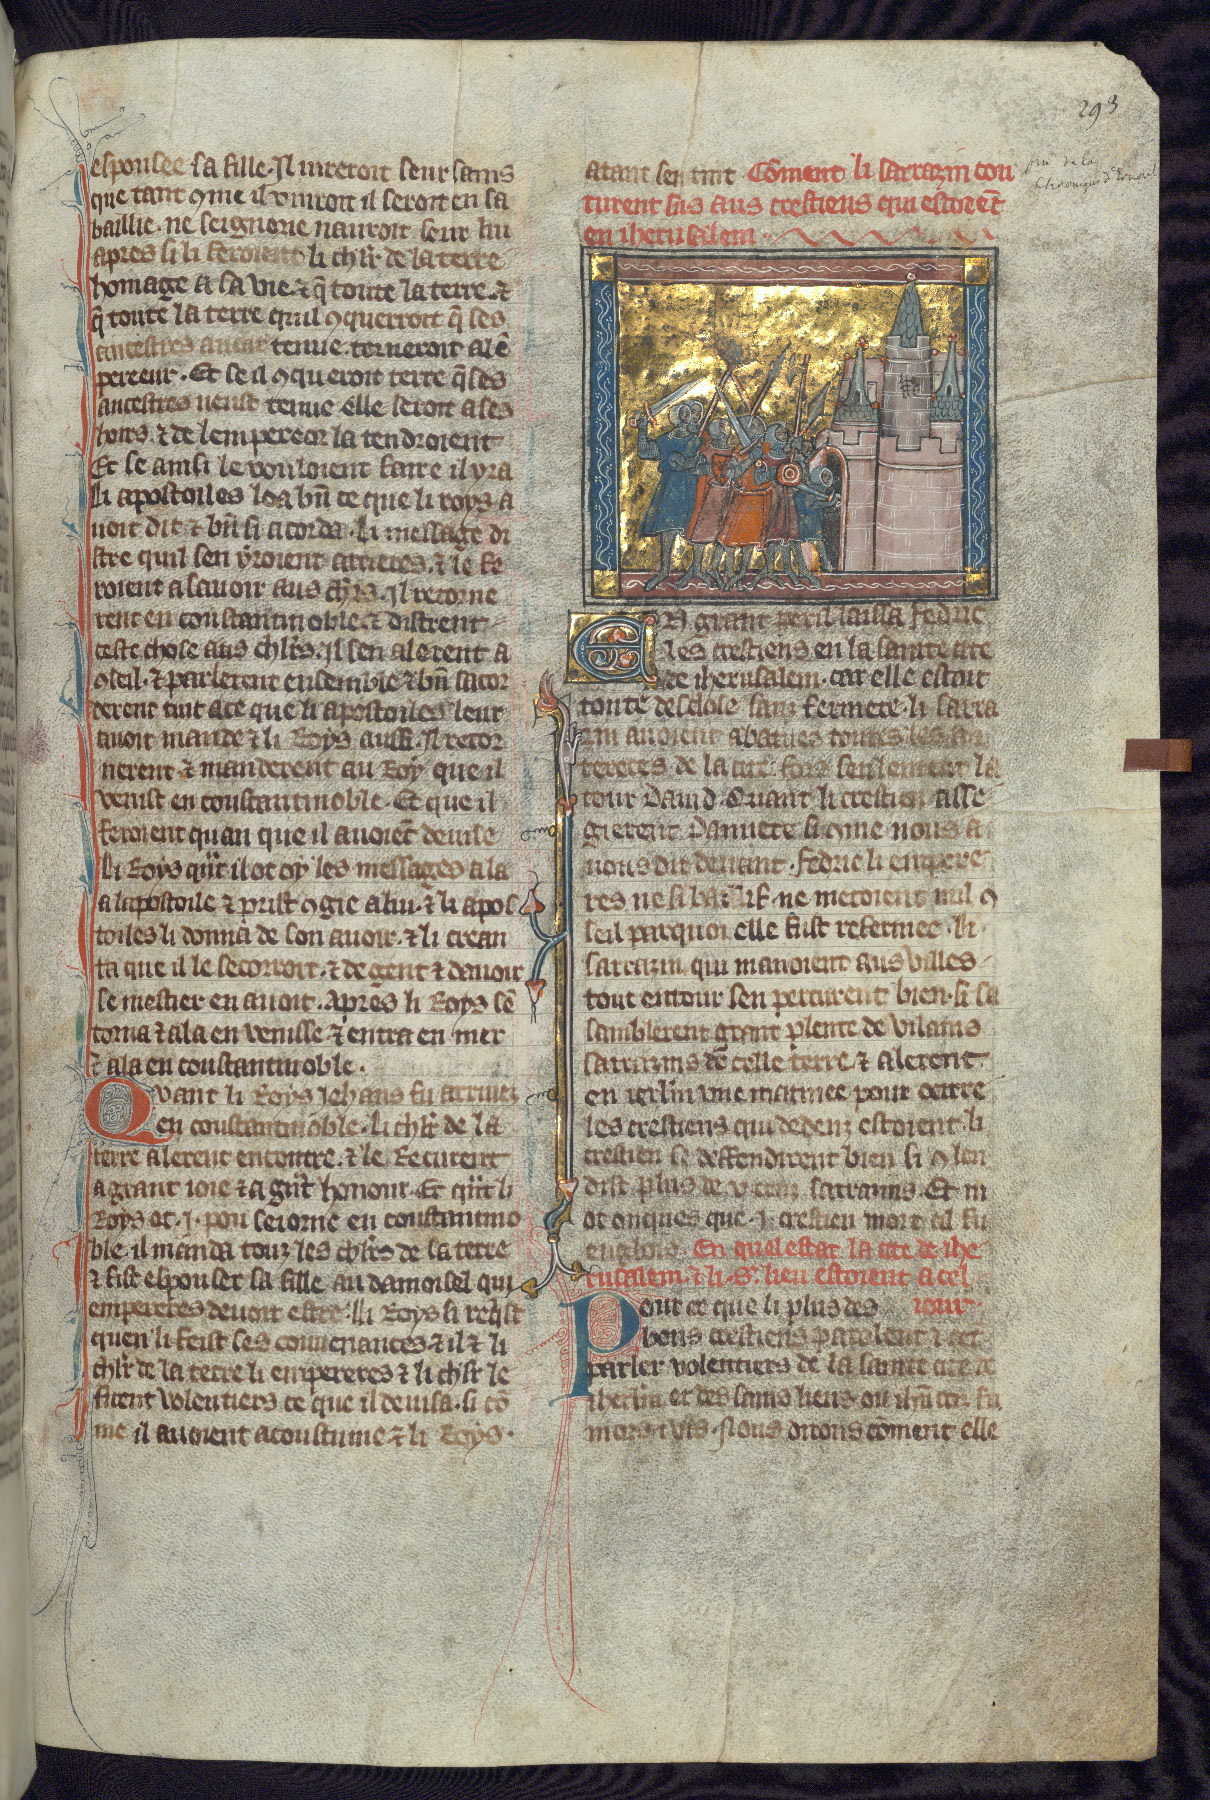 293
fin de la
Chronique d'Ernoul
espousee sa fille. Il iureroit seur sains
que tant 9me il viuroit il seront en sa
baillie. ne seignorie nauroit seur lui
apres si li feroient li chlr̄ de la terre
homage a sa vie. ⁊ q̄ toute la terre. ⁊
q̄ toute la terre quil 9querroit q̄ ses
ancestres auoit tenue. torneroit a lē
pereeur. Et se il 9queroit terre q̄ ses
ancestres neust tenue elle seroit a ses
hoirs. ⁊ de lempereor la tendroient
Et se ainsi le vouloient faire il yra
Li apostoiles loa bn̄ ce que li roys a
uoit dit ⁊ bn̄ si acorda. Li message di
stre quil sen yroient arrieres. ⁊ le fe
roient asauoir aus chlrs̄. Il retorne
rent en constantinoble. ⁊ distrent
ceste chose aus chlrs̄. Il sen alerent a
9seil. ⁊ parlerent ensemble ⁊ bn̄ sacor
derent tuit a ce que li apostoiles leur
auoit mande ⁊ li Roys ausi. Il retor
nerent ⁊ manderent au Roy que il
venist en constantinoble. Et que il
feroient quan que il auoiēt deuise
Li Roys qn̄t il ot oy les messages ala
a lapostoile ⁊ prist 9gie a lui. ⁊ li apos
toiles li donna de son auoir. ⁊ li crean
ta que il le secorroit. ⁊ de gent ⁊ dauoir
se mestier en auoit. Apres li Roys sē
torna ⁊ ala en venisse ⁊ entra en mer
⁊ ala en constantinoble.
Quant li Roys Jehans fu arriuez
en constantinoble. li chlr̄ de la
terre alerent encontre. ⁊ le recurent
a grant ioie ⁊ a gn̄t honnour. Et qn̄t li
Roys ot .i. pou seiorne en constantino
ble. il manda touz les chlrs̄ de la terre
⁊ fist espouser sa fille au damoisel qui
empereres deuoit estre. Li Roys li requist
quen li feist ses couuenances ⁊ il ⁊ li
chlr̄ de la terre li empereres ⁊ li chlr̄ le
firent volentiers ce que il deuisa. si cō
me il auoient acoustume ⁊ li Roys.
atant sen tint Cōment li sarrazin cou
rurent sus aus crestiens qui estoiēt
en iherusalem
En grant peril laissa Fedric
les crestiens en la sainte cite
de iherusalem. car elle estoit
toute desclose sanz fermete. li sarra
zin auoient abatues toutes les for
tereces de la cite. fors seulement la
tour Dauid. Quant li crestien asse
gierent Damiete si 9me nous a
uons dit deuant. Fedric li empere
res ne si baillif. ne metoient nul 9
seil parquoi elle fust refermee. li
sarrazin qui manoient aus villes
tout entour sen percurent bien. si sa
samblerent grant plente de vilains
sarrazins de celle terre. ⁊ alerent
en ierlm̄ vne matinee pour ocirre
les crestiens qui dedenz estoient. li
crestien se deffendirent bien si 9 len
dist plus de v cenz sarrazins. Et ni
ot onques que .i. crestien mort cil fu
englois. En quel estat la cite de ihe
rusalem. ⁊ li .S. lieu estoient a cel
iour.
Pour ce que li plus des
bons crestiens parolent ⁊
parler volentiers de la sainte cite de
iherlm̄ et des sains lieus ou fu
mors ⁊ vis. Nous dirons cōment elle